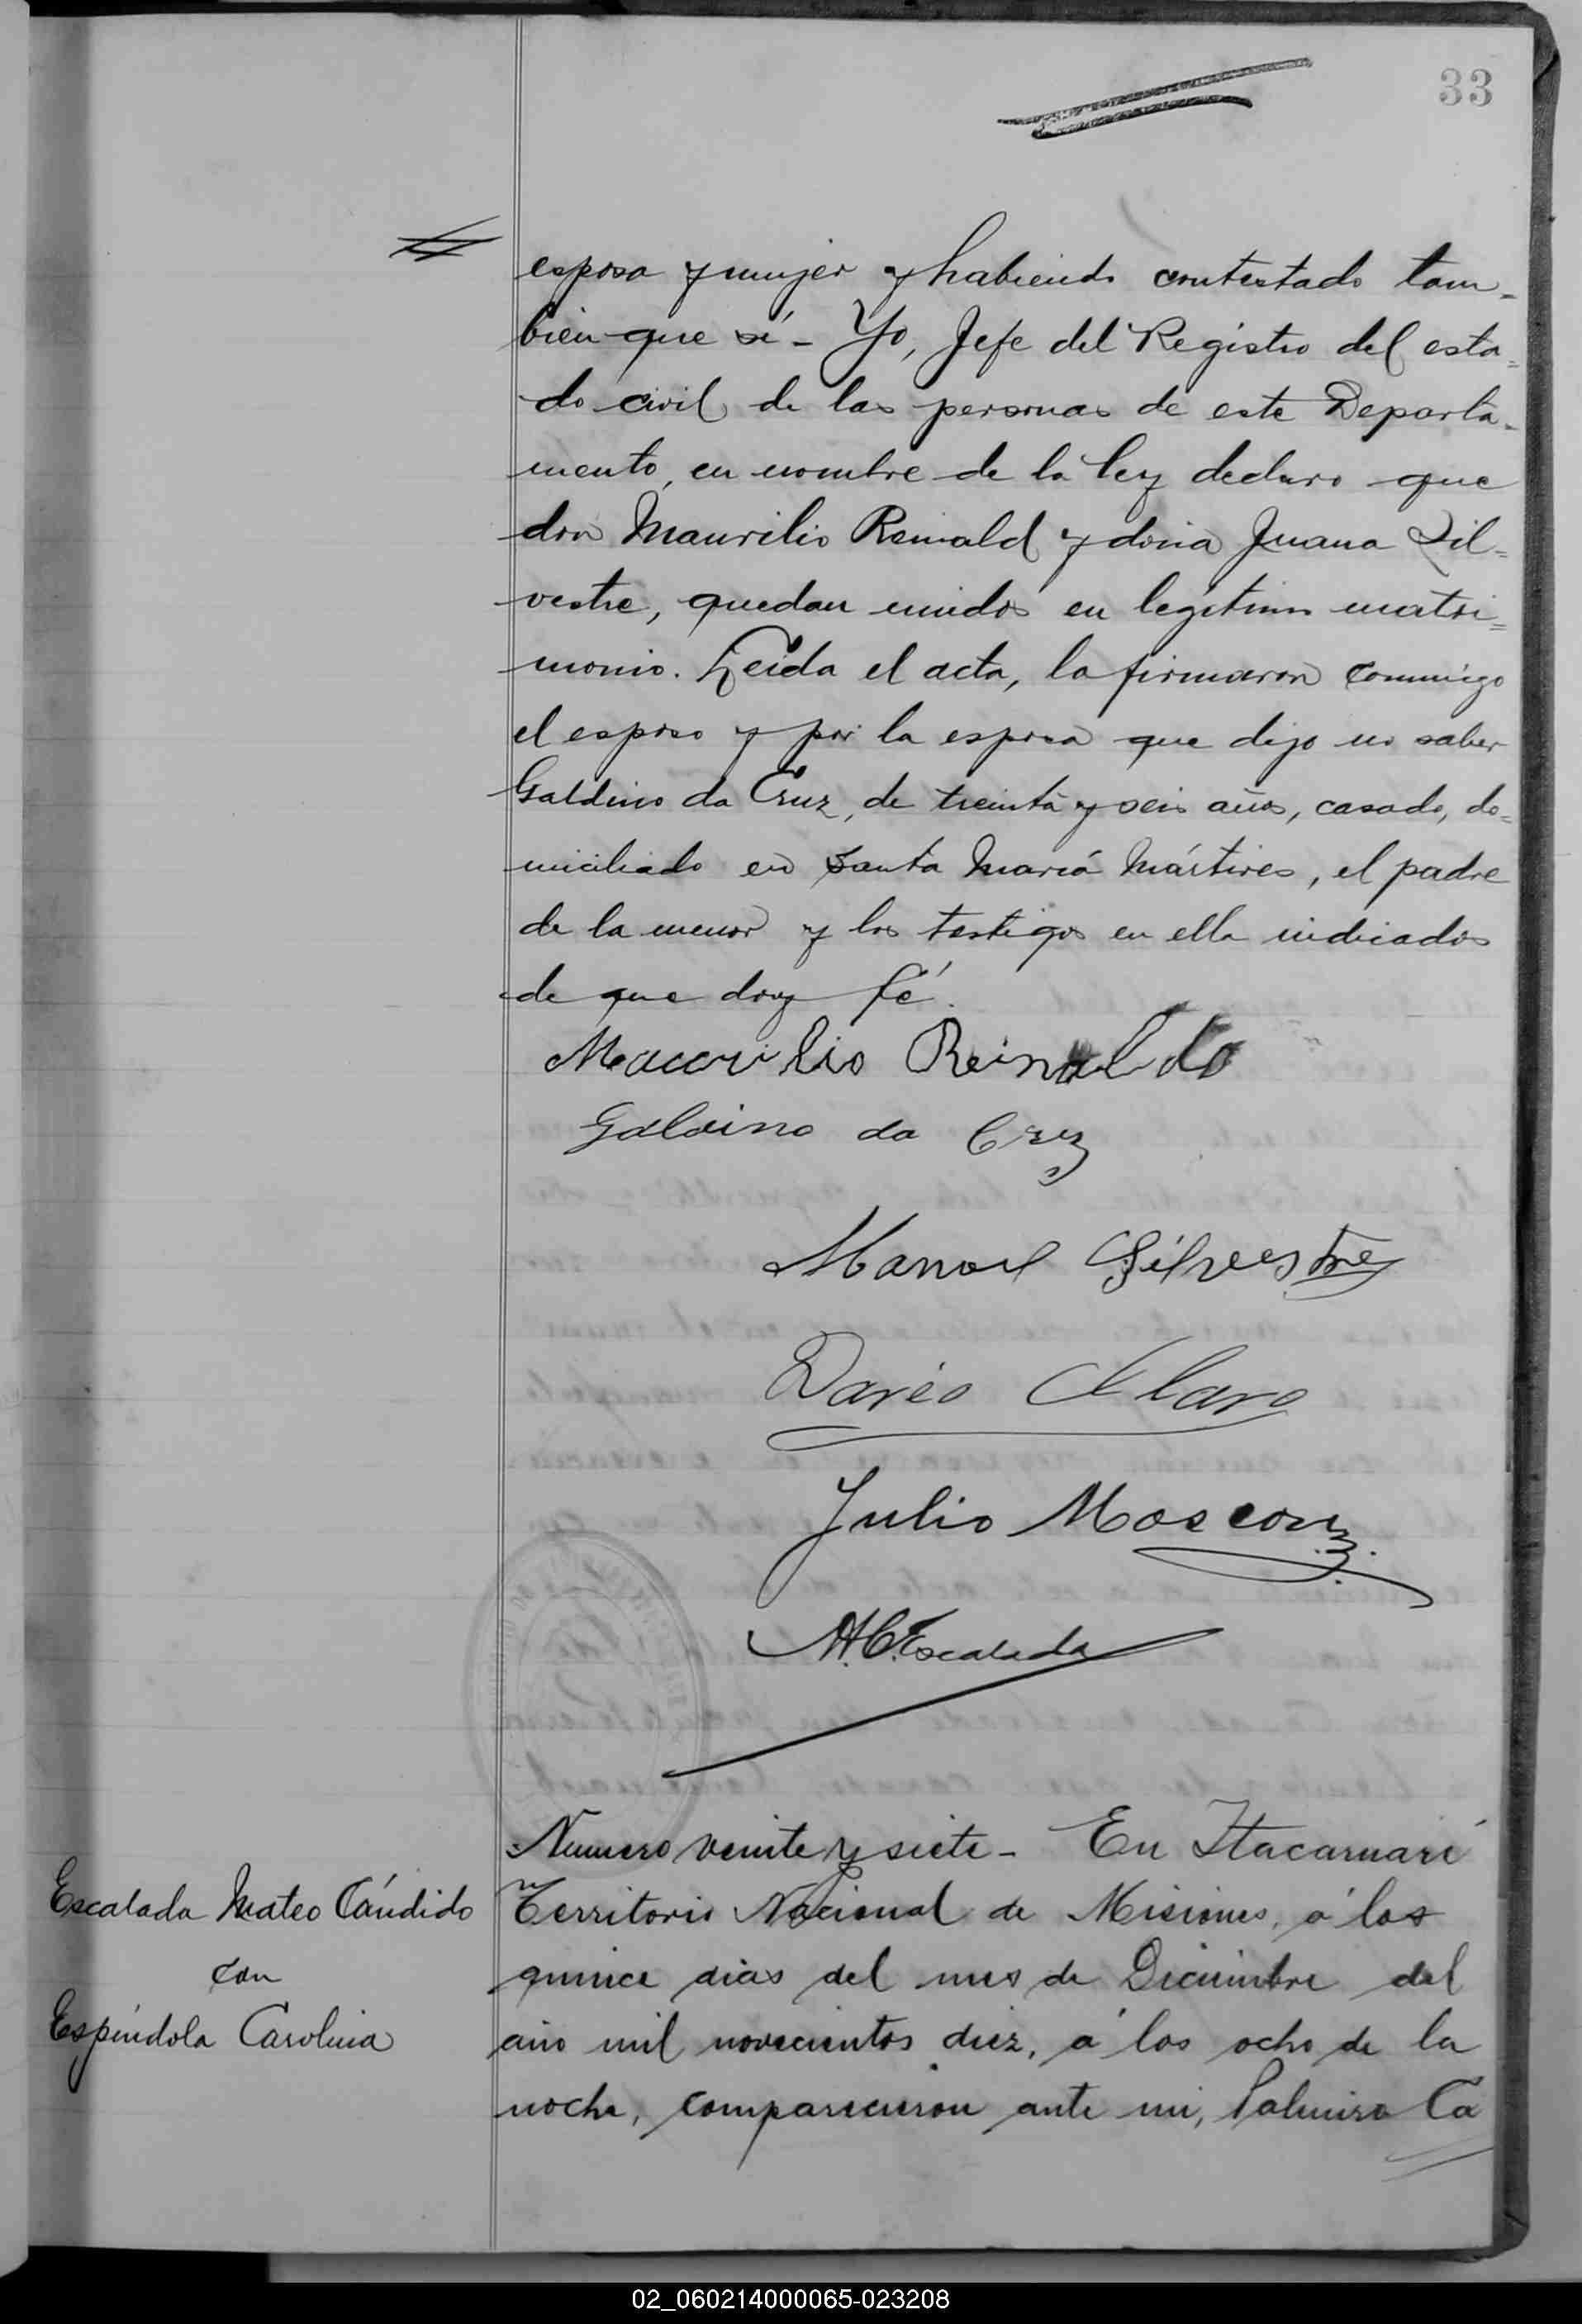 33
esposa y mujer y habiendo contestado tam-
bien que sí - Yo, Jefe del Registro del esta=
do civil de las personas de este Departa-
mento, en nombre de la ley declaro que
don Maurilio Reinald y doña Juana Sil=
vestre, quedan unidos en legítimo matri=
monio. Leida el acta, la firmaron conmigo
el esposo y por la esposa que dijo no saber
Galdino da Cruz, de treinta y seis años, casado, do=
miciliado en Santa María Mártires, el padre
de la menor y los testigos en ella indicados
de que doy fé.
Maurilio Reinaldo
Galdino da Cruz
Manoel Silvestre
Dario Claro
Julio Moscon
M. C. Escalada
Numero veinte y siete - En Itacaruaré
Escalada Mateo Cándido
con
Espíndola Carolina
Territorio Nacional de Misiones, á los
quince dias del mes de Diciembre del
año mil novecientos diez, á las ocho de la
noche, comparecieron ante mi, Palmiro Ca
02_060214000065-023208